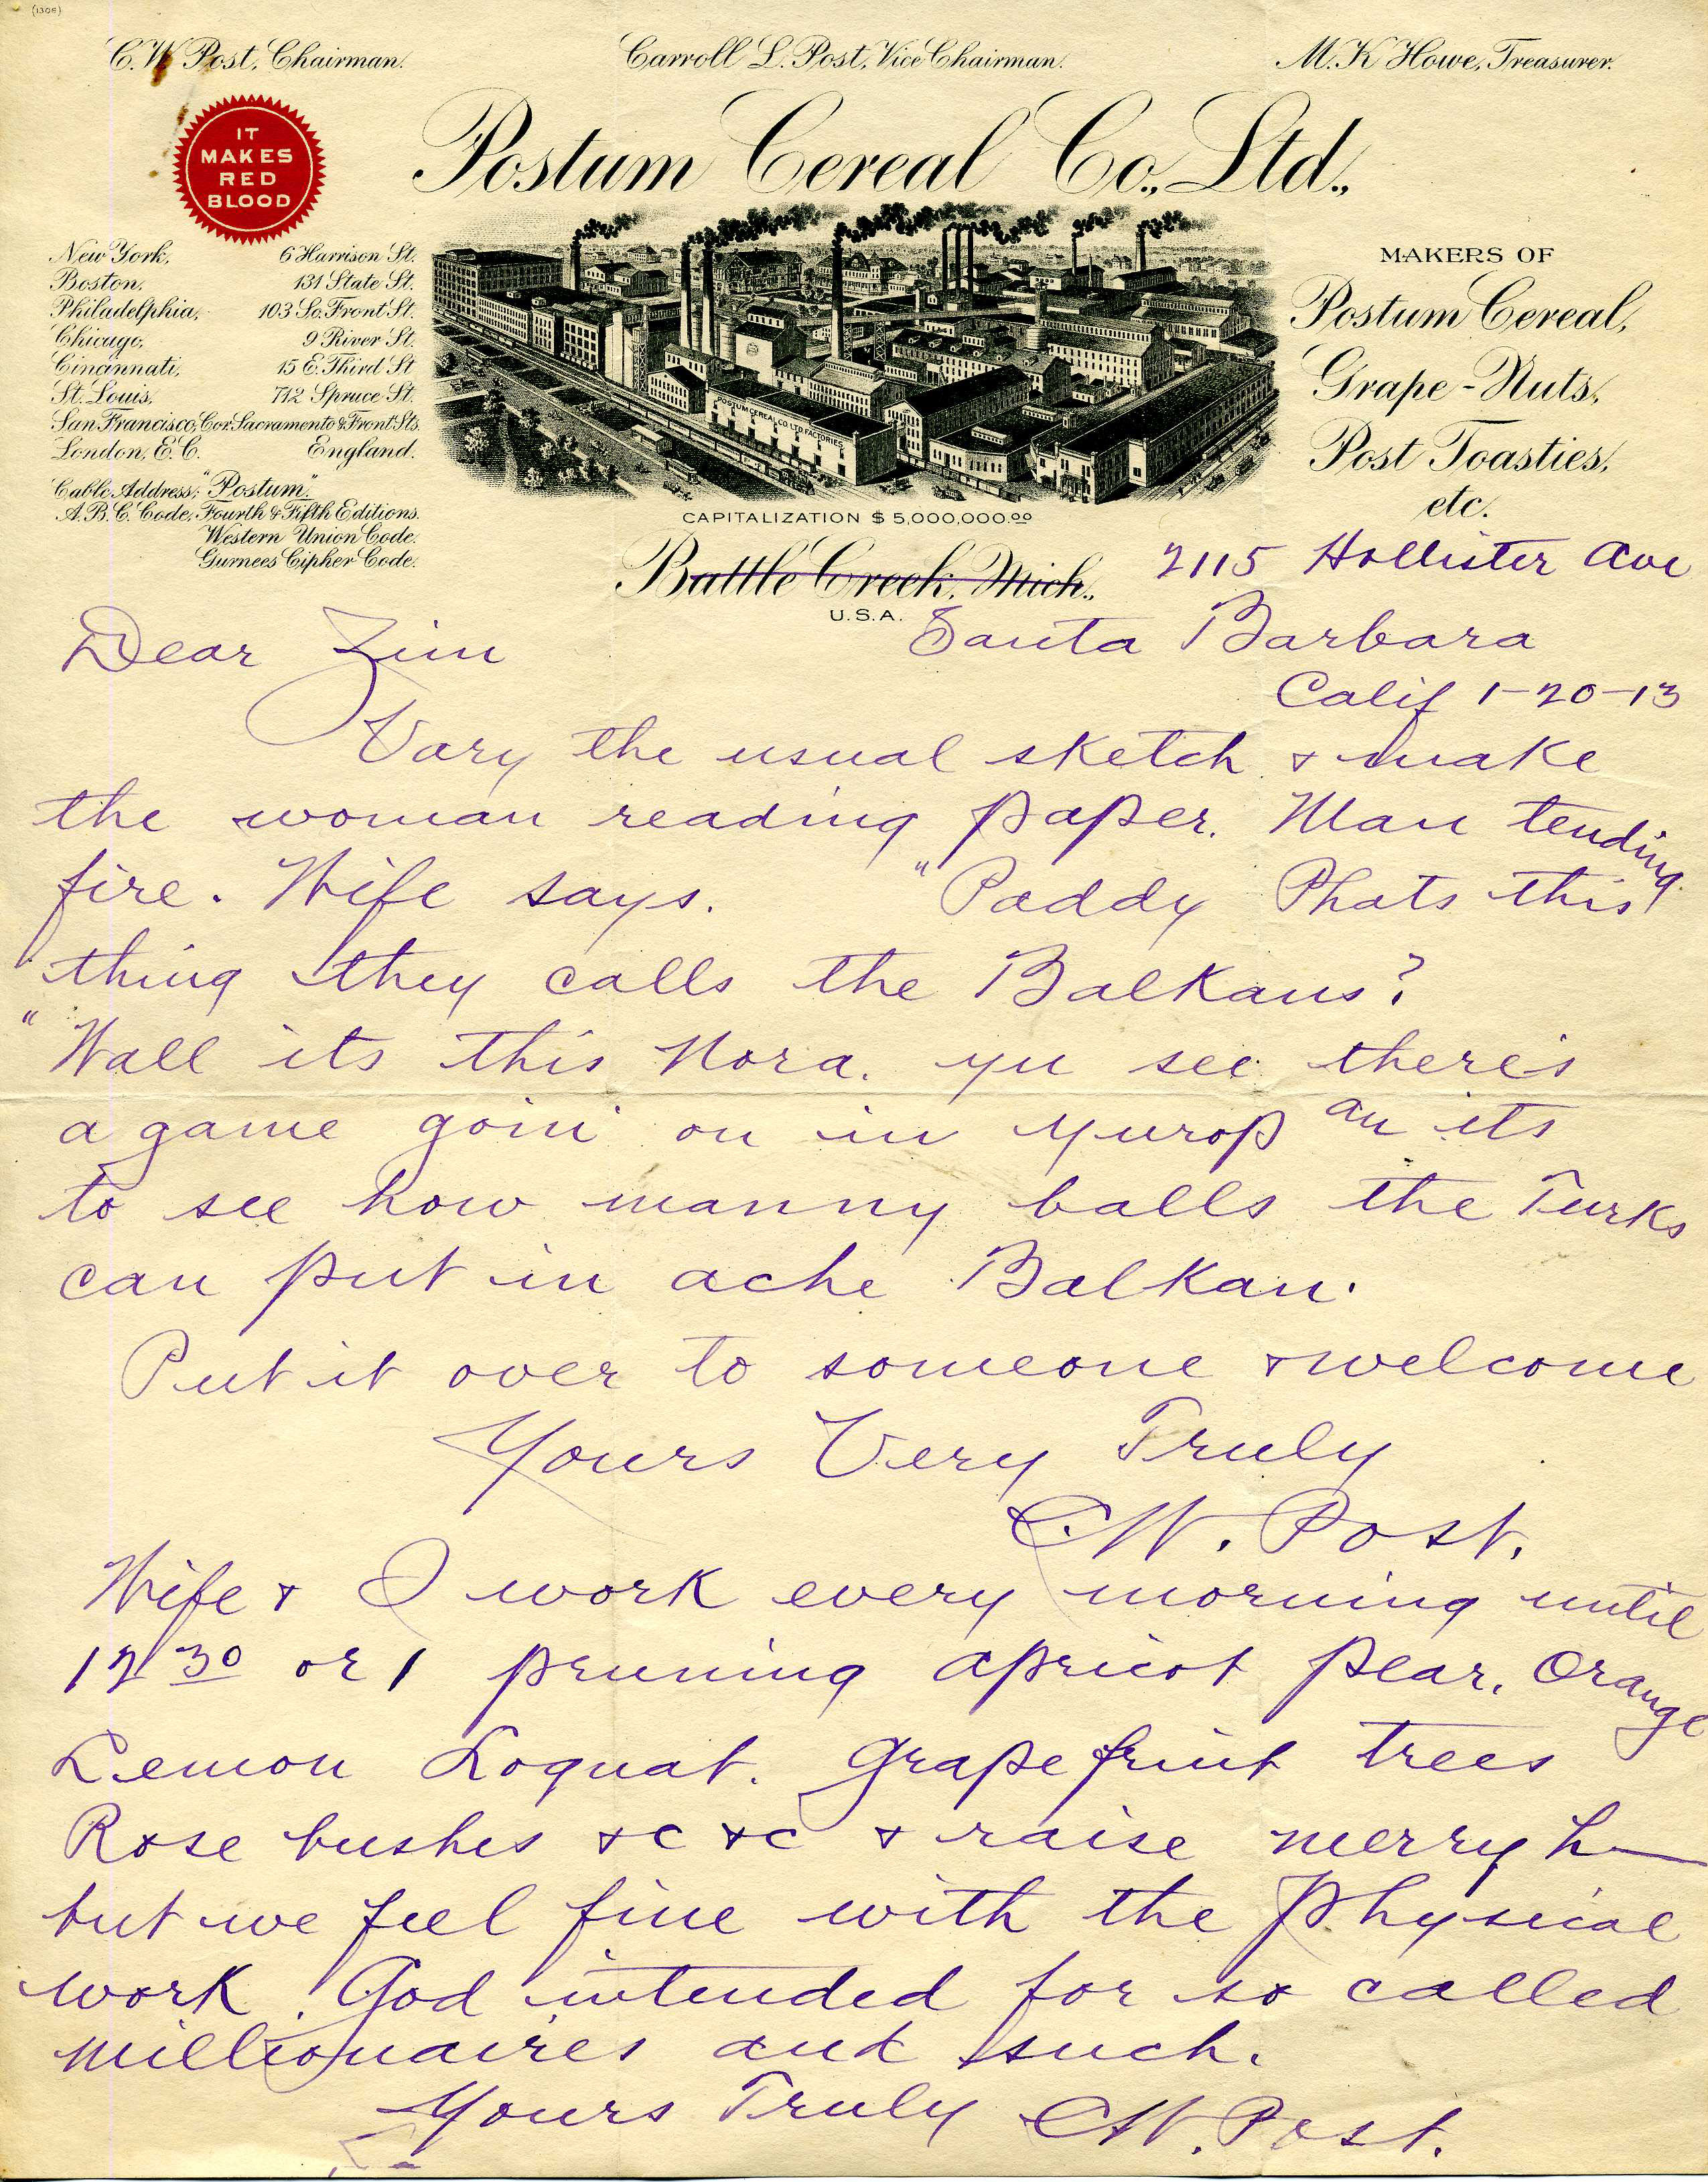 (1306)
C. W. Post, Chairman.
Carroll L. Post, Vice Chairman.
M. K Howe, Treasurer.
IT
MAKES
RED
BLOOD
Postum Cereal Co., Ltd.,
New York, 6 Harrison St.
Boston, 131 State St.
Philadelphia, 103 So. Front St.
Chicago, 9 River St.
Cincinnati, 15 E. Third St
St. Louis, 712 Spruce St.
San Francisco, Cor. Sacramento & Front Sts.
London, E. C. England.
Cable Address; "Postum."
A. B. C. Code, Fourth & Fifth Editions.
Western Union Code.
Gurnees Cipher Code.
POSTUM CEREAL CO. LTD. FACTORIES
MAKERS OF
Postum Cereal,
Grape-Nuts,
Post Toasties,
etc.
CAPITALIZATION $5,000,000.00
Battle Creek, Mich.,
U.S.A.
2115 Hollister Ave
Santa Barbara
Calif 1-20-13
Dear Zim
Vary the usual sketch & make
the woman reading paper. Man tending
fire. Wife says. "Paddy Phats this
thing they calls the Balkans?
"Wall its this Nora. yu see there's
a game goin' on in Yurop an its
to see how manny balls the Turks
can put in ache Balkan.
Put it over to someone & welcome
Yours Very Truly
CW. Post.
Wife & I work every morning until
12 30 or 1 pruning apricot pear, Orange
Lemon Loquat. Grape fruit trees
Rose bushes &c &c & raise merry h—
but we feel fine with the physical
work. God intended for so called
millionaires and such.
Yours Truly CW. Post.